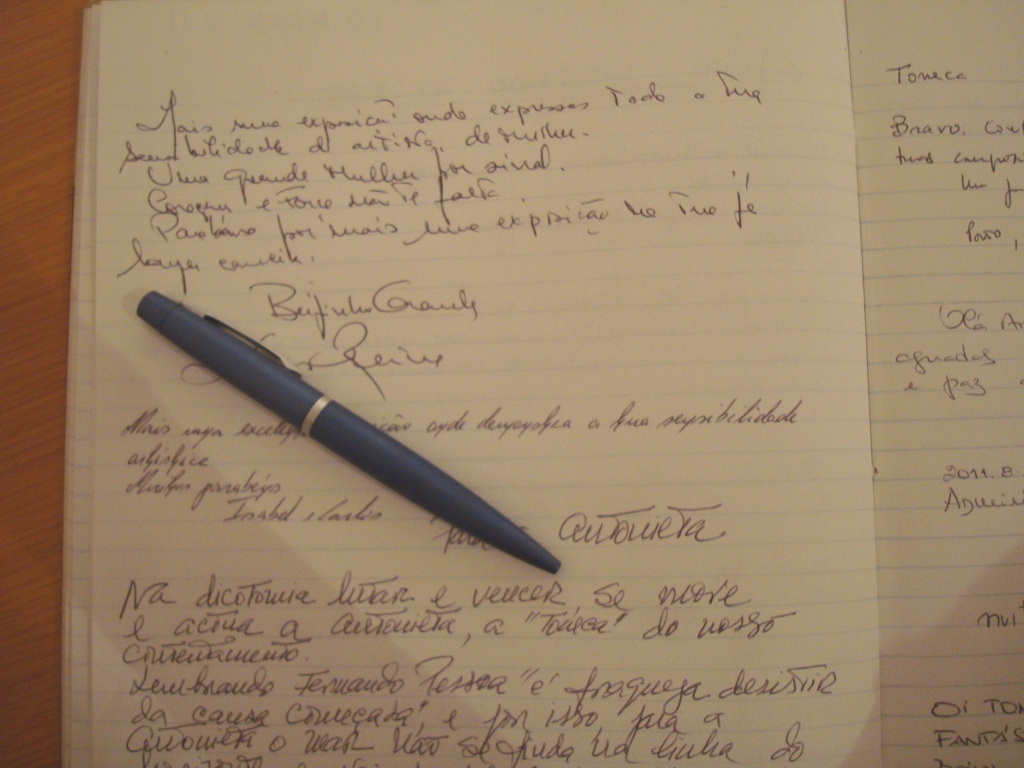 Mais uma exposição onde expressas todo a tua
sensibilidade de artista, de mulher.
Uma grande mulher por sinal.
Coração e força não te falta.
Parabéns por mais uma exposição na tua já
longa carreira.
Beijinho Grande
Mais uma onde demonstra a tua sensibilidade
artística
Muitos parabéns
Isabel e Carlos
Para Antonieta
Na dicotomia lutar e vencer, se move
e actua a Antonieta, a "Toneca" do nosso
contentamento.
Lembrando Fernando Pessoa "é fraqueza desistir
da causa começada", e por isso, para a
Antonieta o mar não se finda na linha do
Toneca
Bravo.
tuas
Um
Porto,
Olá
aguadas
e paz
2011.8.
OI